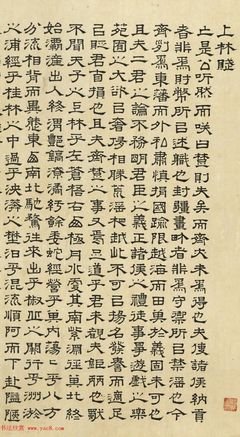 上林賦
亡是公听然而咲曰楚則失矣而齊亦未為得也夫使諸侯納貢
者非為財幣所以述職也封疆畫界者非為守禦所以禁淫也今
齊列為東藩而外私肅慎捐國踰限越海而田其於義固未可也
且夫二君之論不務明君臣之義正諸侯之禮徒事爭遊戲之樂
苑囿之大欲以奢侈相勝荒淫相越此不可以揚名發譽而適足
以貶君自損也且夫齊楚之事又烏足道乎君未覩夫巨麗也獨
不聞天子之上林乎左蒼梧右西極丹水更其南紫淵徑其北終
始灞滻出入涇渭酆鎬潦潏紆餘委蛇經營乎其內蕩蕩乎八川
分流相背而異態東西南北馳騖往來出乎椒丘之闕行乎洲淤
之浦經乎桂林之中過乎泱漭之壄汩乎混流順阿而下赴隘陿
书法欣赏